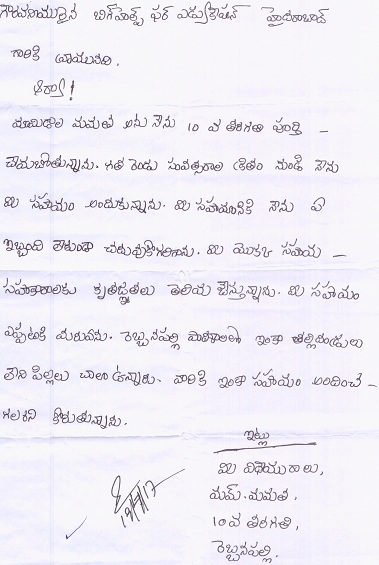 గౌరవనీయులైన బిగ్‌హెల్ప్ ఫర్ ఎడ్యుకేషన్ హైదరాబాద్
గారికి వ్రాయునది.
ఆర్యా!
మామిడాల మమత అను నేను 10 వ తరగతి పూర్తి –
చేయబోతున్నాను. గత రెండు సంవత్సరాల క్రితం నుండి నేను
మీ సహాయం అందుకున్నాను. మీ సహాయానికి నేను ఏ
ఇబ్బంది లేకుండా చదువుకోగలిగాను. మీ యొక్క సహాయ –
సహకారాలకు కృతజ్ఞతలు తెలియ చేస్తున్నాను. మీ సహాయం
ఎప్పటికి మరువను. రెబ్బనపల్లి పాఠశాలలో ఇంకా తల్లిదండ్రులు
లేని పిల్లలు చాలా ఉన్నారు. వారికి ఇంకా సహాయం అందించ –
గలరని కోరుతున్నాను.
ఇట్లు
మీ విధేయురాలు,
మమ్. మమత,
10వ తరగతి,
రెబ్బనపల్లి.